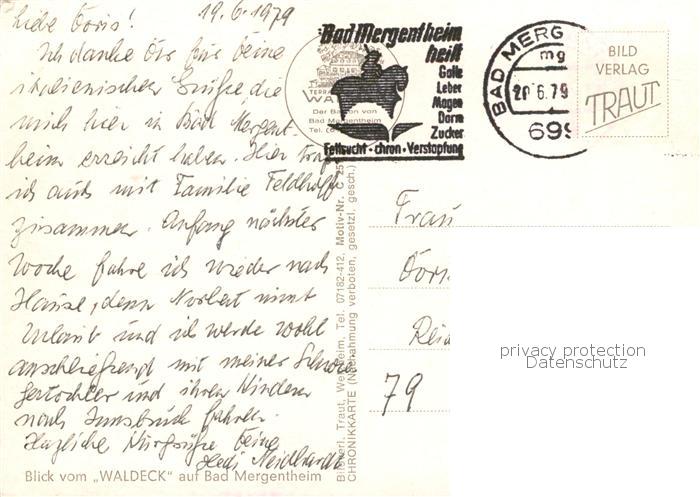 19.6.1979
Liebe Doris!
Ich danke Dir für Deine
italienischen Grüße die
mich hier in Bad Mergent-
heim erreicht haben. Hier traf
ich auch mit Familie Feldhoff
zusammen. Anfang nächster
Woche fahre ich wieder nach
Hause, denn Norbert nimmt
Urlaub und ich werde wohl
anschließend mit meiner Schwie
gertochter und ihren Kindern
nach Innsbruck fahren.
Herzliche Kurgrüße Deine
Hedi Neidhardt
Blick vom „WALDECK" auf Bad Mergentheim
TERRA
WA
Der Balkon von
Bad Mergentheim
Tel. (
Bad Mergentheim
heilt
Galle
Leber
Magen
Darm
Zucker
Fettsucht · chron · Verstopfung
BAD MERG
mg
20.6.79
699
BILD
VERLAG
TRAUT
Traut, Tel. 07182-412, Motiv-Nr. C 25
CHRONIKKARTE (Nachahmung verboten, gesetzl. gesch.)
Frau
Doris
79
privacy protection
Datenschutz